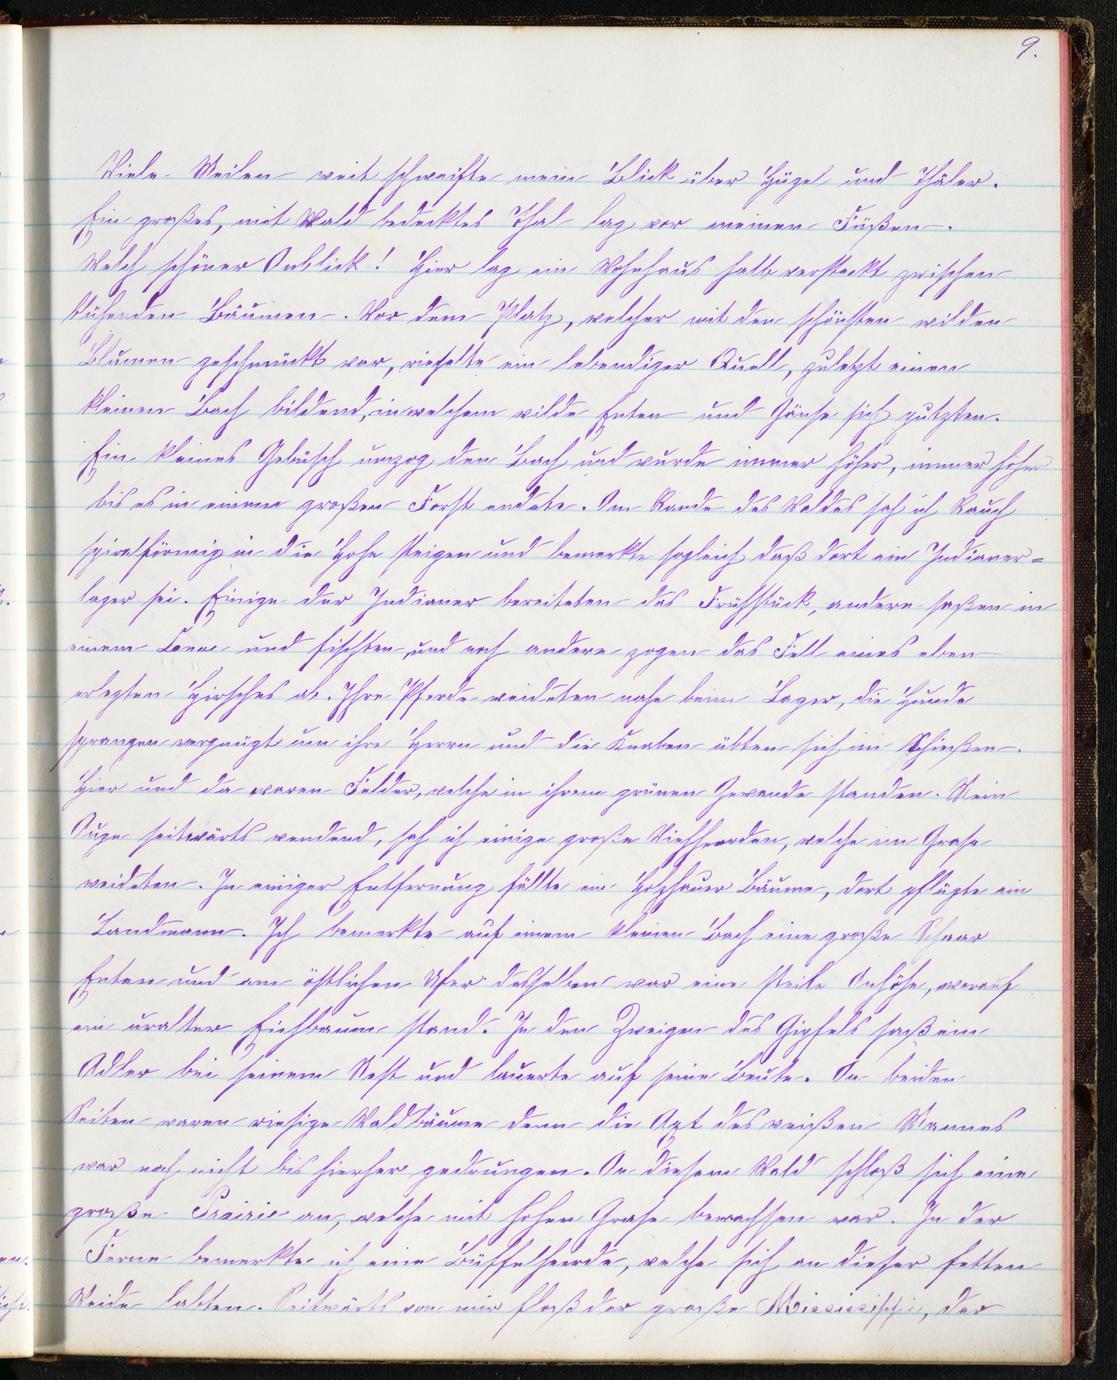 9.
Viele Meilen weit schweifte mein Blick über Hügel und Thäler.
Ein großes, mit Wald bedecktes Thal lag vor meinen Füßen.
Welch schöner Anblick! Hier lag ein Wohnhaus halb versteckt zwischen
blühenden Bäumen. Vor dem Platz, welcher mit den schönsten wilden
Blumen geschmückt war, rieselte ein lebendiger Quell, zuletzt einen
kleinen Bach bildend, in welchem wilde Enten und Gänse sich putzten.
Ein kleines Gebüsch umzog den Bach und wurde immer höher, immer höher
bis es in einem großen Forst endete. Am Rande des Waldes sah ich Rauch
spiralförmig in die Höhe steigen und bemerkte sogleich daß dort ein Indianer=
lager sei. Einige der Indianer bereiteten das Frühstück, andere saßen in
einem Canoe und fischten, und noch andere zogen das Fell eines eben
erlegten Hirsches ab. Ihre Pferde weideten nahe beim Lager, die Hunde
sprangen vergnügt um ihre Herrn und die Knaben übten sich im Schießen.
Hier und da waren Felder, welche in ihrem grünen Gewande standen. Mein
Auge seitwärts wendend, sah ich einige große Viehheerden, welche im Grase
weideten. In einiger Entfernung fällte ein Holzhauer Bäume, dort pflügte ein
Landmann. Ich bemerkte auf einem kleinen Bach eine große Schaar
Enten und am östlichen Ufer desselben war eine steile Anhöhe, worauf
ein uralter Eichbaum stand. In den Zweigen des Gipfels saß ein
Adler bei seinem Nest und lauerte auf seine Beute. An beiden
Seiten waren riesige Waldbäume denn die Axt des weißen Mannes
war noch nicht bis hierher gedrungen. An diesem Wald schloß sich eine
große Prairie an, welche mit hohem Grase bewachsen war. In der
Ferne bemerkte ich eine Büffelheerde, welche sich an dieser fetten
Weide labten. Seitwärts von mir floß der große Mississippi, der